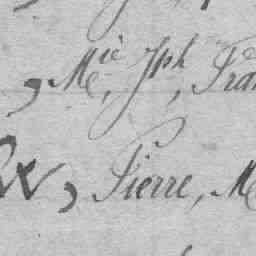 , M.ie, Jph, Fran
, Pierre, M